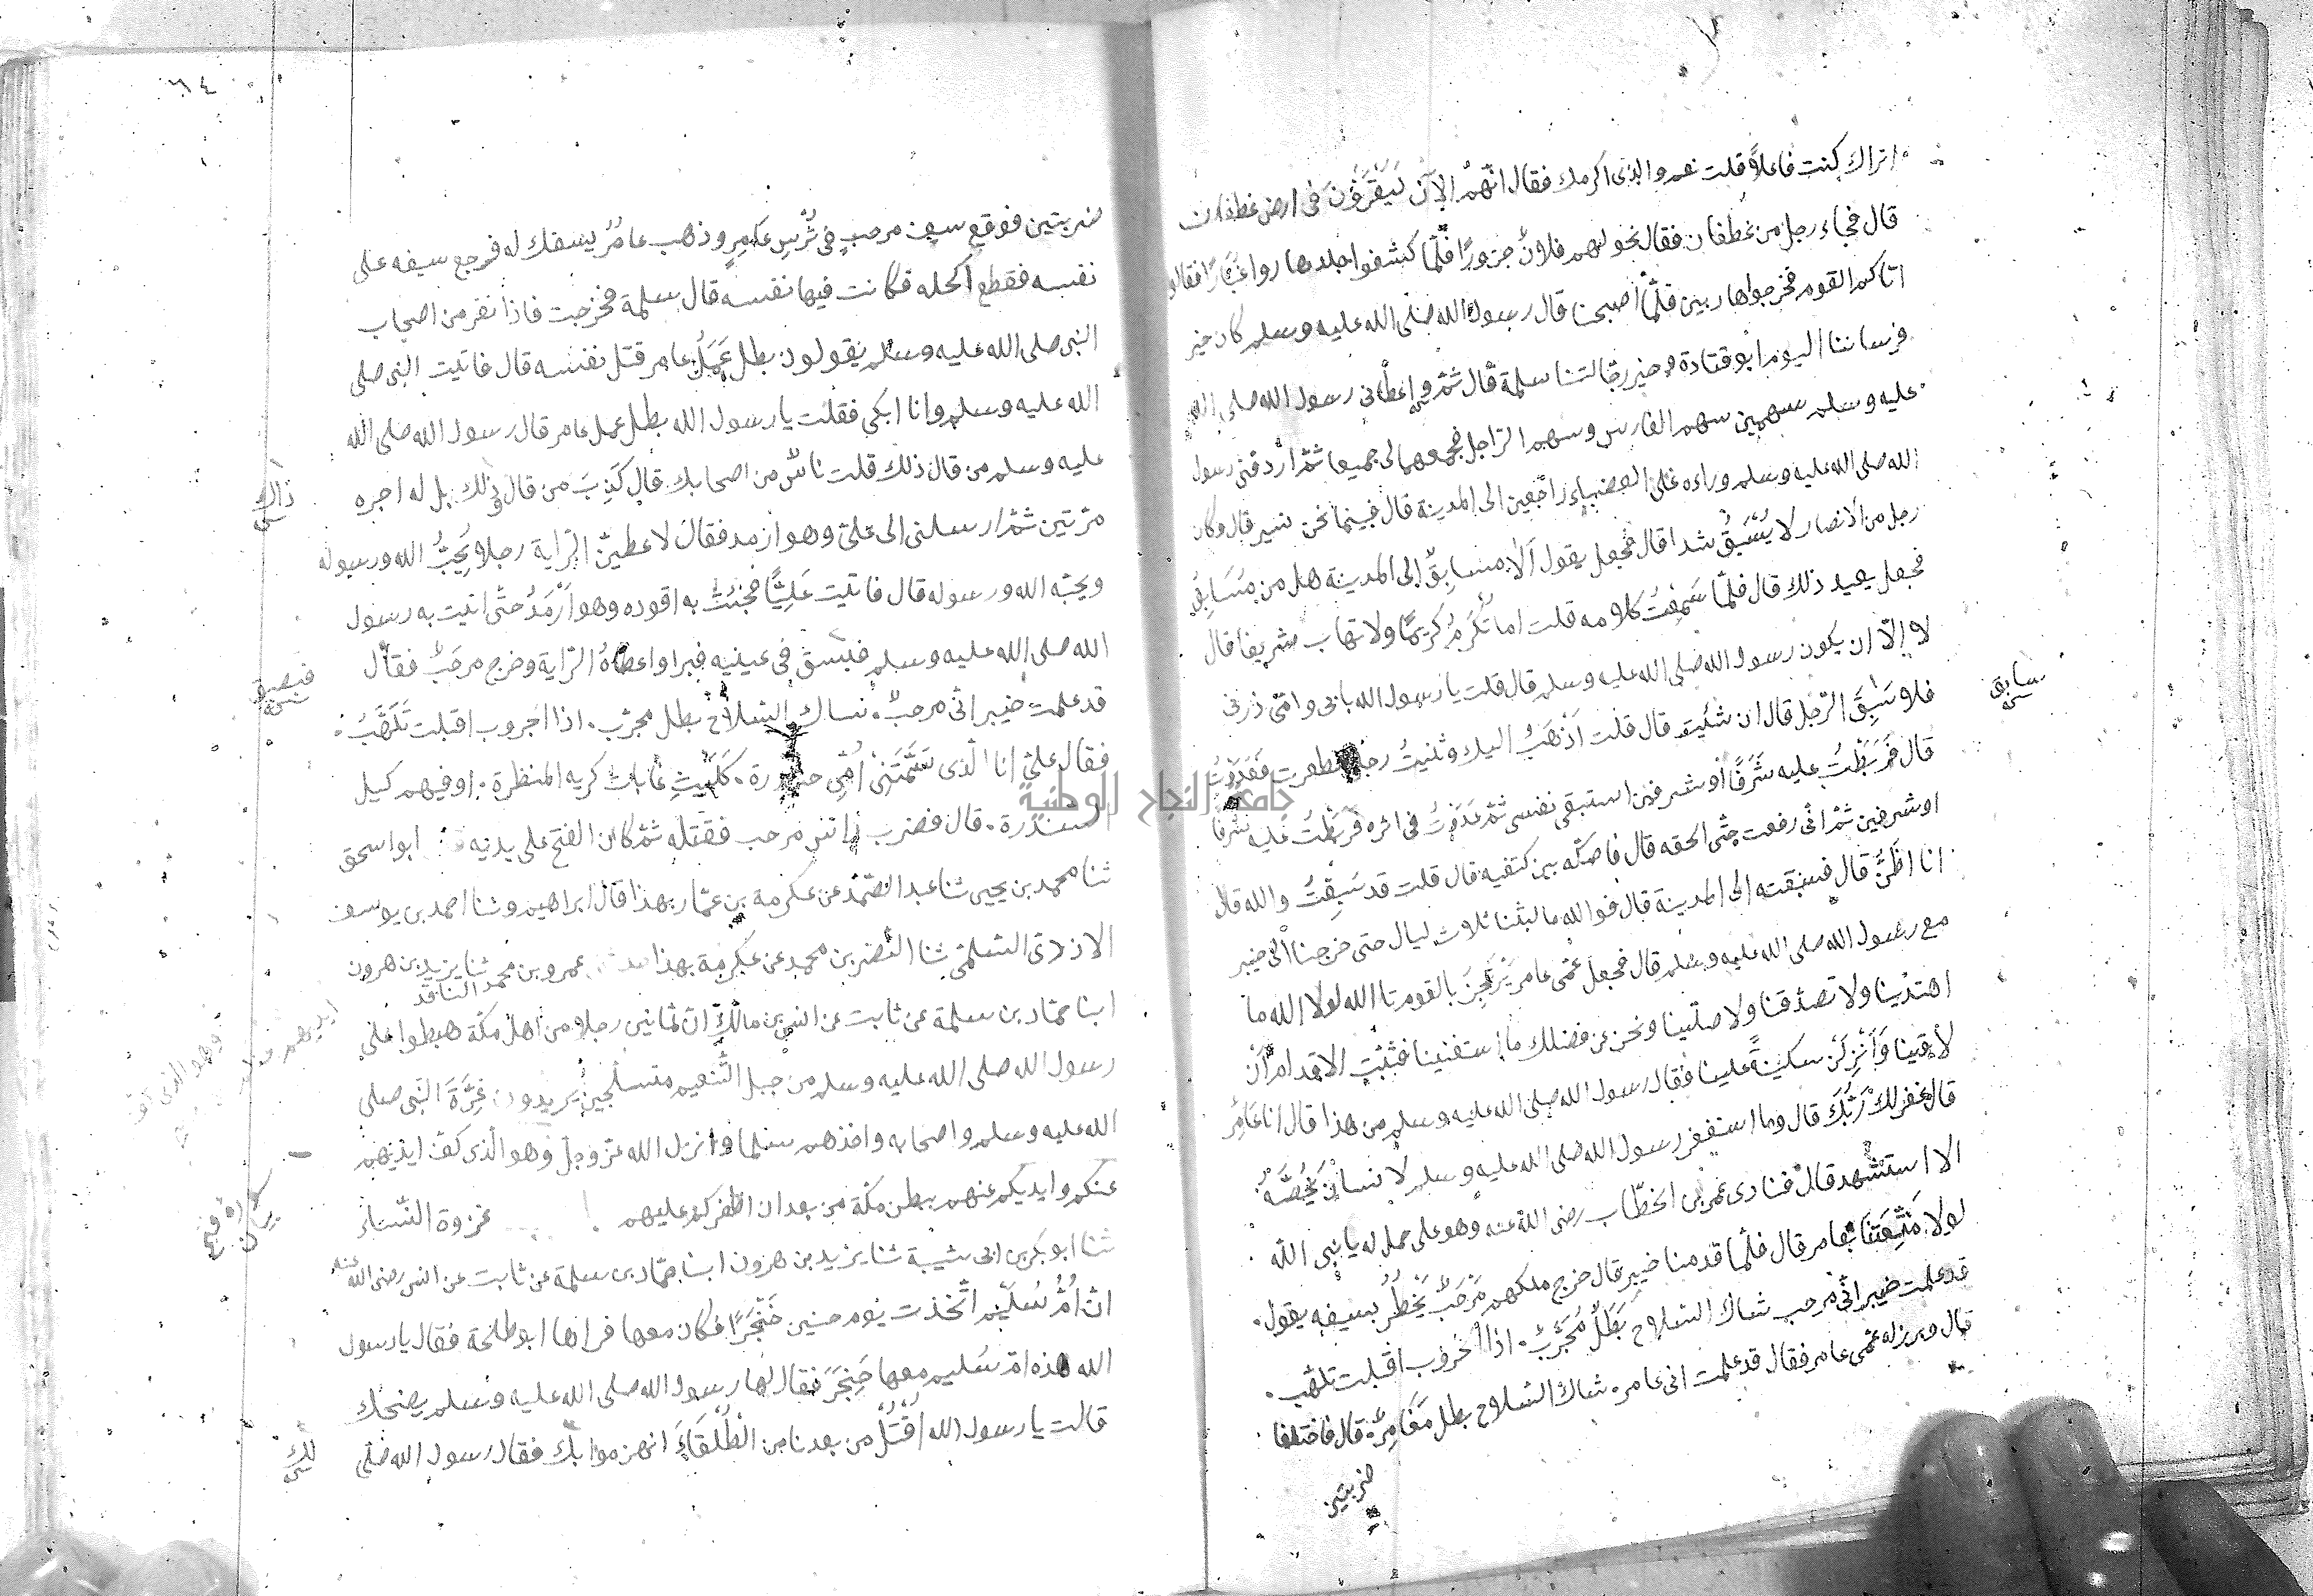 اتراك كنت فاعلا قلت نعم والذى اكرمك فقال انهم الآن ليقرون فى ارض غطفان
قال فجاء رجل من غطفان فقال نحر لهم فلان جزورا فلما كشفوا جلدها راوا غبارا فقالوا
اتاكم القوم فخرجوا هاربين فلما اصبحنا قال رسول الله صلى الله عليه وسلم كان خير
فرساننا اليوم ابو قتادة وخير رجالتنا سلمة قال ثم اعطانى رسول الله صلى الله
عليه وسلم سهمين سهم الفارس وسهم الراجل فجمعهما لى جميعا ثم اردفنى رسول
الله صلى الله عليه وسلم وراءه على العضباء راجعين الى المدينة قال فبينما نحن نسير قال وكان
رجل من الانصار لا يُسْبَقُ شدا قال فجعل يقول الا مسابق الى المدينة هل من مُسَابِقٍ
فجعل يعيد ذلك قال فلما سمعت كلامه قلت اما تُكْرِمُ كريمًا ولا تهاب شريفا قال
لا الا ان يكون رسول الله صلى الله عليه وسلم قال قلت يا رسول الله بابى وامى ذرنى
فلاسبق الرجل قال ان شئت قال قلت اذهب اليك وثنيت رجلى فطفرت فعدوت
سابق
قال فربطت عليه شرفًا او شرفين استبقى نفسى ثم عدوت فى اثره فربطت عليه شرفا
او شرفين ثم انى رفعت حتى الحقه قال فاصكه بين كتفيه قال قلت قد سُبِقْتَ والله قال
انا اظن قال فسبقته الى المدينة قال فوالله ما لبثنا ثلاث ليال حتى خرجنا الى خيبر
مع رسول الله صلى الله عليه وسلم قال فجعل عمى عامر يرتجز بالقوم تا الله لولا الله ما
اهتدينا ولا تصدقنا ولا صلينا ونحن عن فضلك ما استغنينا فثبت الاقدام ان
لاقينا وَأَنْزِلَنْ سكينةً علينا فقال رسول الله صلى الله عليه وسلم من هذا قال انا عامر
قال غفر لك ربك قال وما استغفر رسول الله صلى الله عليه وسلم لانسان يخصه
الا استشهد قال فنادى عمر بن الخطاب رضى الله عنه وهو على جمل له يا نبى الله
لولا متعتنا بعامر قال فلما قدمنا خيبر قال خرج ملكهم مرحب يخطر بسيفه يقول
قد علمت خيبر انى مرحب شاك السلاح بَطَلٌ مُجَرَّبٌ اذا الحروب اقبلت تلهب
قال وبرز له عمى عامر فقال قد علمت انى عامر شاك السلاح بطل مغامر قال فاختلفا
ضربتين
٦٤
ضربتين فوقع سيف مرحب فى ترس عامر وذهب عامر يسفك له فرجع سيفه على
نفسه فقطع اكحله فكانت فيها نفسه قال سلمة فخرجت فاذا نفر من اصحاب
النبى صلى الله عليه وسلم يقولون بطل عمل عامر قتل نفسه قال فاتيت النبى صلى
الله عليه وسلم وانا ابكى فقلت يا رسول الله بطل عمل عامر قال رسول الله صلى الله
عليه وسلم من قال ذلك قلت ناس من اصحابك قال كَذِبَ من قال ذلك بل له اجره
ذاك
مرتين ثم ارسلنى الى على وهو ارمد فقال لاعطين الراية رجلا يحب الله ورسوله
ويحبه الله ورسوله قال فاتيت عليًّا فجئت به اقوده وهو اَرْمَدُ حتى اتيت به رسول
الله صلى الله عليه وسلم فبسق فى عينيه فبرا واعطاه الراية وخرج مرحب فقال
فبصق
قد علمت خيبر انى مرحب شاك السلاح بطل مجرب اذا الحروب اقبلت تلهب
فقال على انا الذى سمتنى امى حيدرة كليث غابات كريه المنظرة اوفيهم كيل
السندرة قال فضرب راس مرحب فقتله ثم كان الفتح على يديه ابو اسحق
ثنا محمد بن يحيى ثنا عبد الصمد عن عكرمة بن عمار بهذا قال ابراهيم وثنا احمد بن يوسف
الازدى السلمى ثنا النضر بن محمد عن عكرمة بهذا عمرو بن محمد الناقد ثنا يزيد بن هرون
ابنا حماد بن سلمة عن ثابت عن انس بن مالك ان ثمانين رجلا من اهل مكة هبطوا على
رسول الله صلى الله عليه وسلم من جبل التنعيم متسلحين يريدون غِرَّةَ النبى صلى
الله عليه وسلم واصحابه واخذهم سلما وانزل الله عز وجل وهو الذى كف ايديهم
عنكم وايديكم عنهم ببطن مكة من بعد ان اظفركم عليهم غزوة النساء
ثنا ابو بكر بن ابى شيبة ثنا يزيد بن هرون ابنا حماد بن سلمة عن ثابت عن انس رضى الله عنه
ان ام سليم اتخذت يوم حنين خنجرًا فكان معها فراها ابو طلحة فقال يا رسول
الله هذه ام سليم معها خنجر فقال لها رسول الله صلى الله عليه وسلم يضحك
قالت يا رسول الله اقتل من بعدنا من الطلقاء انهزموا بك فقال رسول الله صلى
جامعة النجاح الوطنية